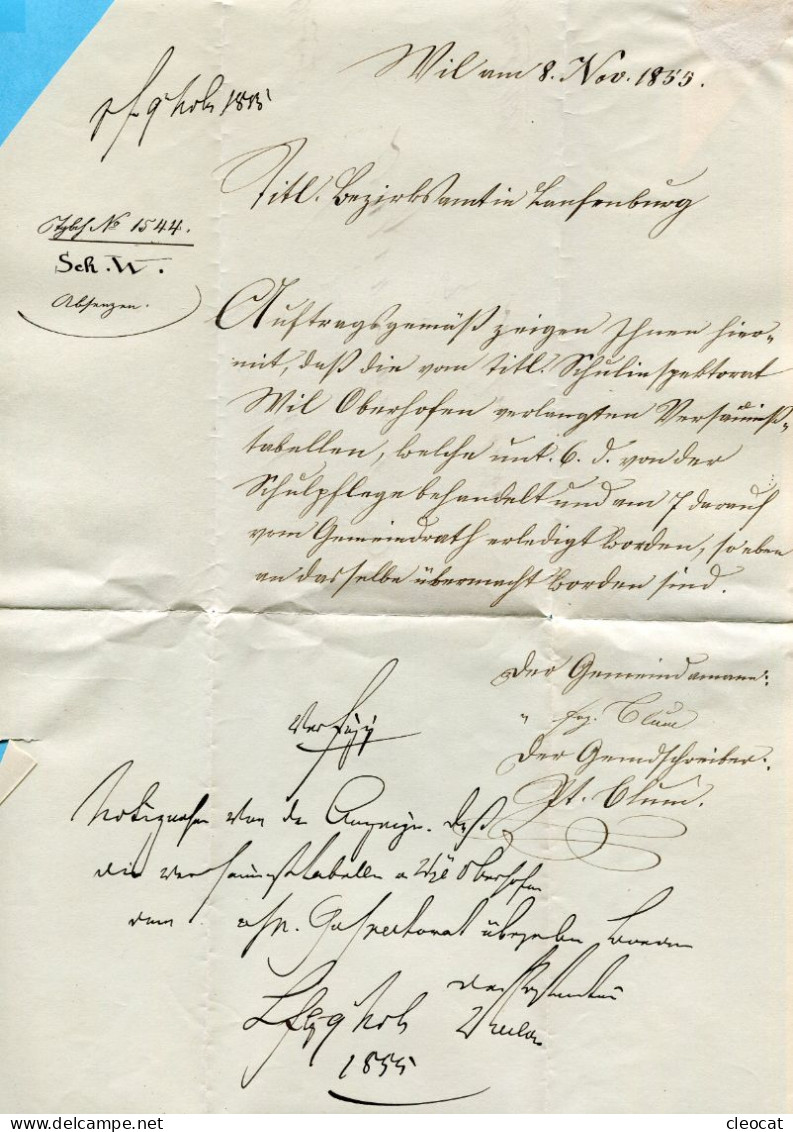 Wil am 8. Nov. 1855.
1855
Titl. Bezirksamt in Laufenburg
No 1544.
Sch. W.
Absenzen.
Auftragsgemäß zeigen Ihnen hier-
mit, daß die vom titl. Schulinspektorat
Wil Oberhofen verlangten Versäumniß-
tabellen, welche unt. 6. d. von der
Schulpflege behandelt und am 7 darauf
vom Gemeindrath erledigt worden, so eben
an dasselbe übermacht worden sind.
Der Gemeindamann:
" Blum
Der Gemdschreiber:
Pt. Blum.
Verfügg
von der Anzeige. daß
die Versäumnißtabellen v Wil Oberhofen
dem Inspectorat übergeben worden
Der
1855
cleocat